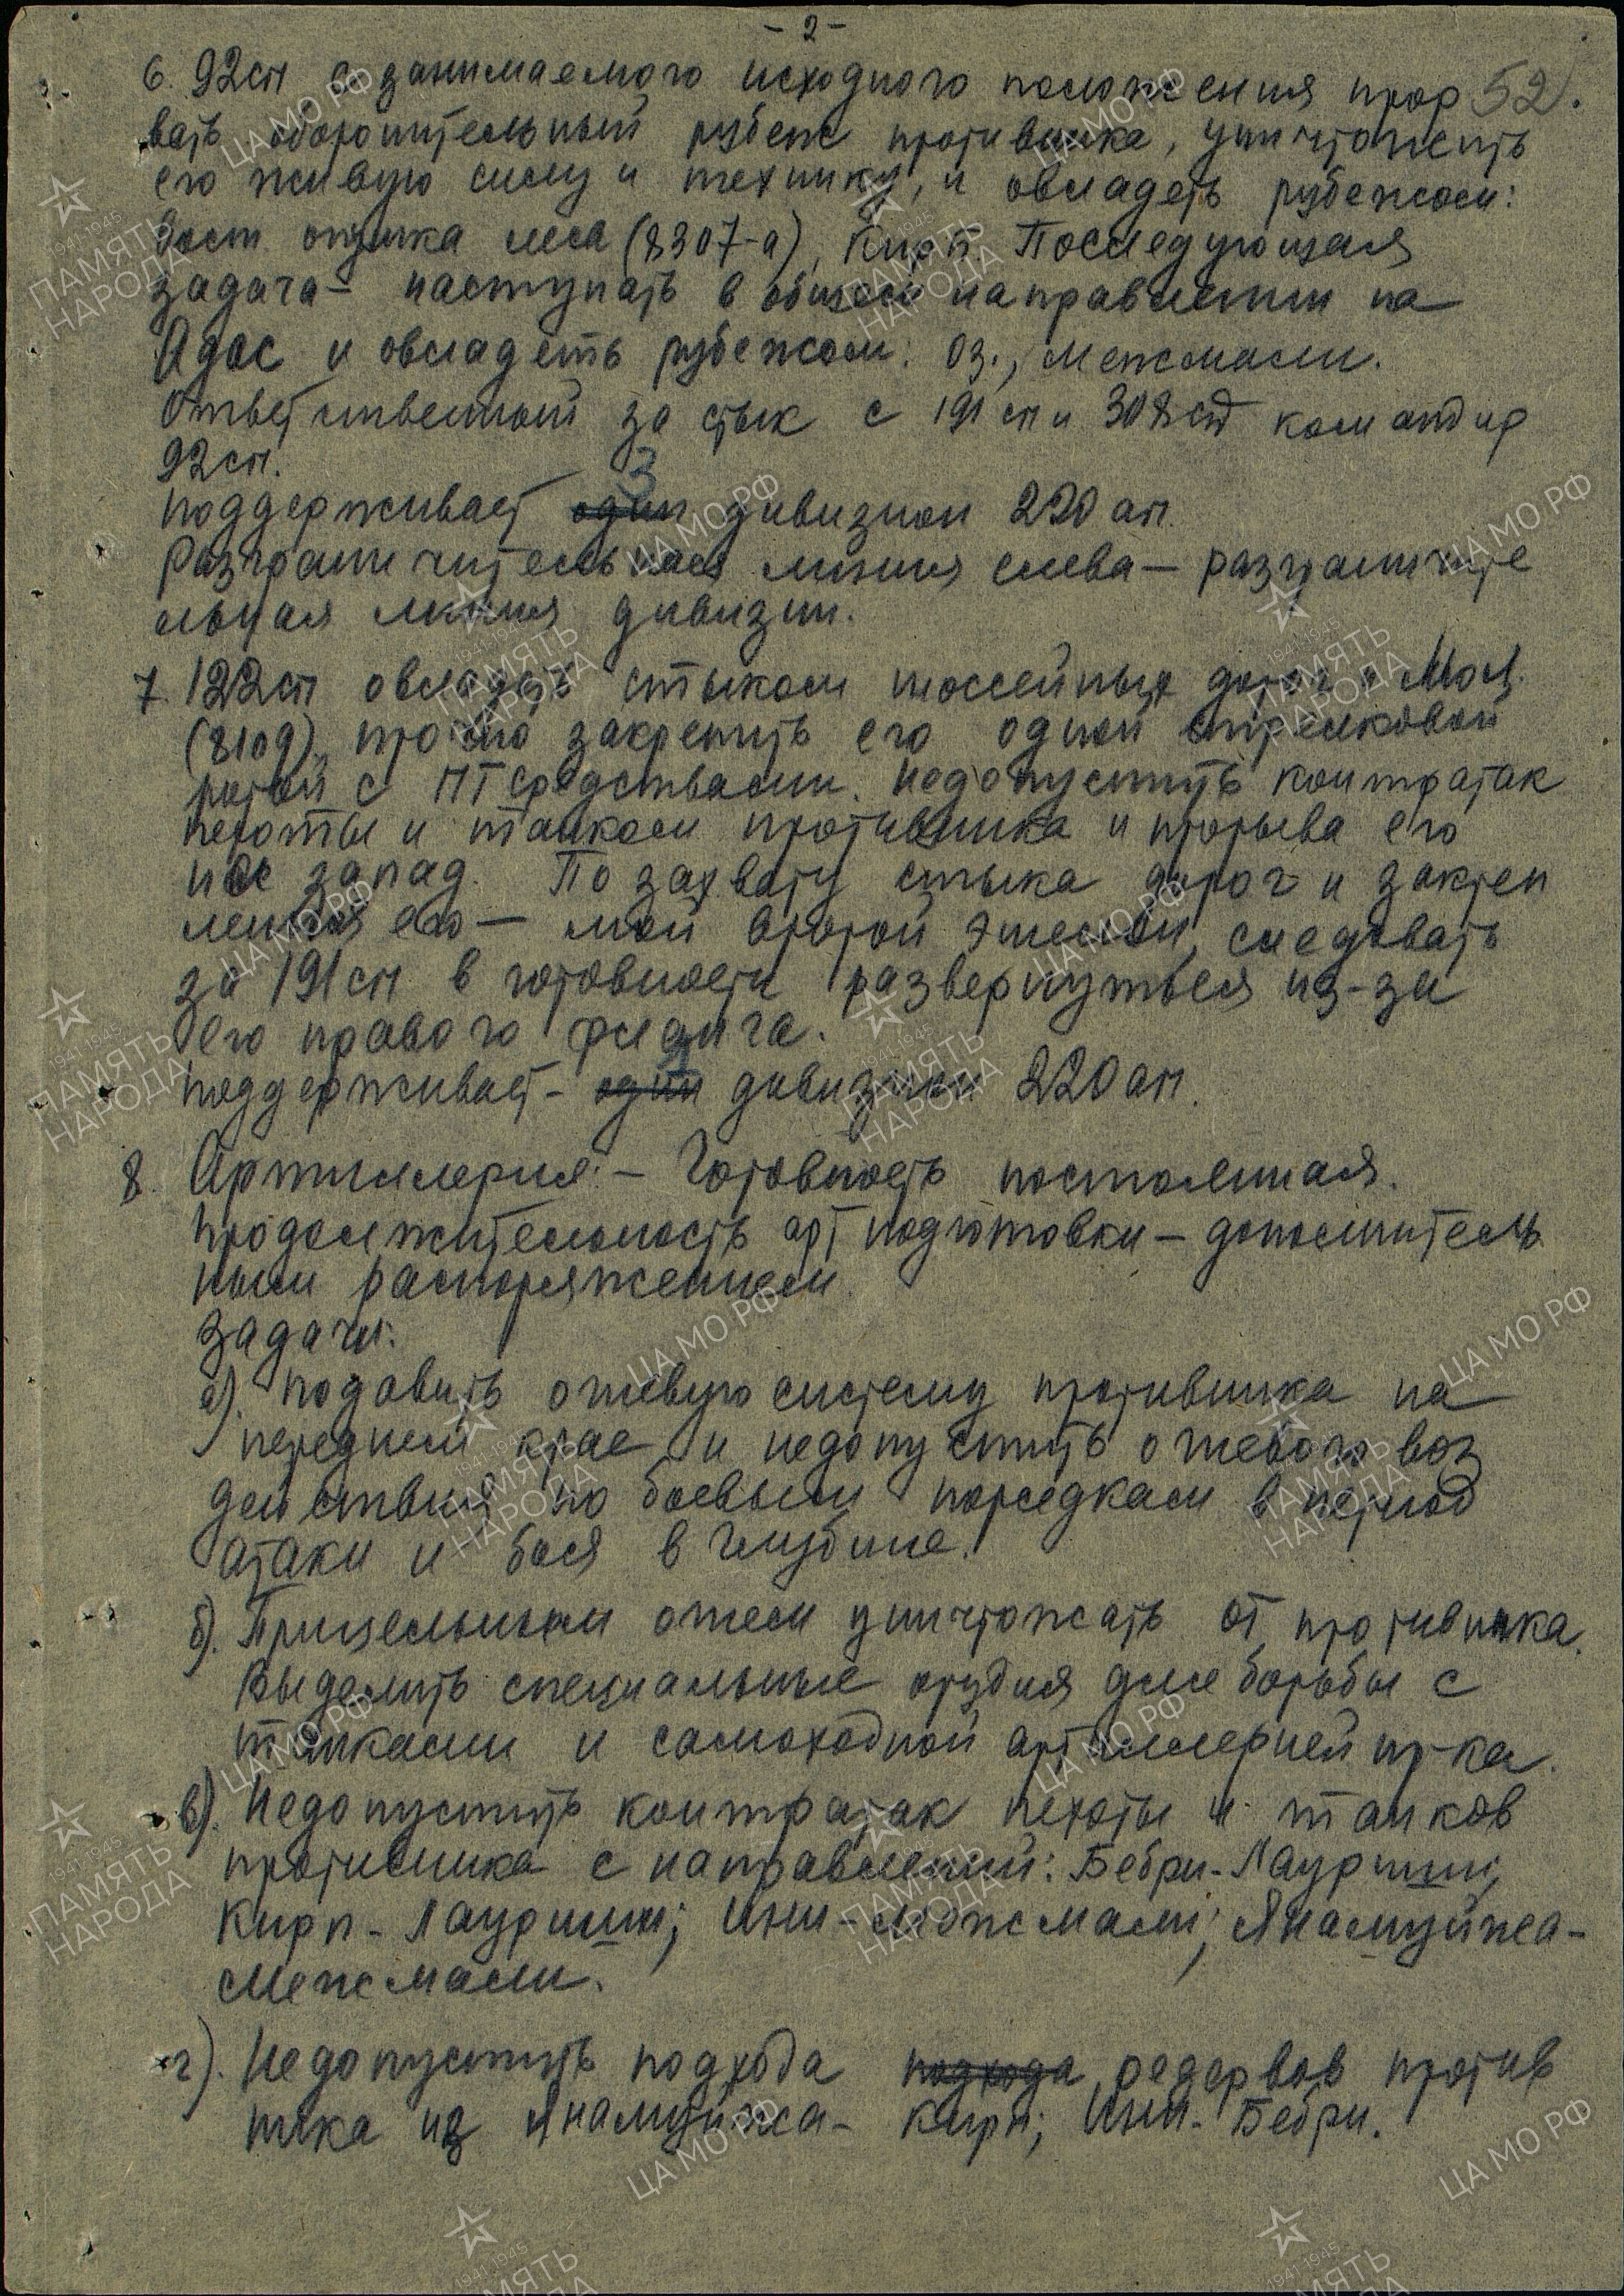 - 2 -
6. 92сп с занимаемого исходного положения прор 52.
вать оборонительный рубеж противника, уничтожить
его живую силу и технику, и овладеть рубежом:
Вост. опушка леса (8307-а), Кирп. Последующая
задача - наступать в общем направлении на
Адас и овладеть рубежом: оз., Межмали.
Ответственный за стык с 191 сп и 308 сд командир
92сп.
Поддерживает один 3 дивизион 220 ап.
Разграничительная линия слева - разграничите
льная линия дивизии.
7. 122сп овладеть стыком шоссейных дорог
(810д), прочно закрепить его одной стрелковой
ротой с ПТ средствами. Недопустить контратак
пехоты и танком противника и прорыва его
на запад. По захвату стыка дорог и закреп
ления его - мой второй эшелон, следовать
за 191 сп в готовности развернуться из-за
его правого фланга.
Поддерживает - один дивизион 220 ап.
8. Артиллерия: - Готовность постоянная.
Продолжительность арт подготовки - дополнитель
ным распоряжением.
Задачи:
а). Подавить огневую систему противника на
переднем крае, и недопустить огневого воз
действия по боевым порядкам в период
атаки и боя в глубине.
б). Прицельным огнем уничтожать от противника.
Выделить специальные орудия для борьбы с
танками и самоходной артиллерией пр-ка.
в). Недопустить контратак пехоты и танков
противника с направлений: Бебри - Лауриши;
Кирп - Лауриши; Ини - Межмали; Янамуйжа -
Межмали.
г). Недопустить подхода подхода резервов против
ника из Янамуйжа - Кирп; Ини - Бебри.
ЦА МО РФ
1941-1945
ПАМЯТЬ
НАРОДА